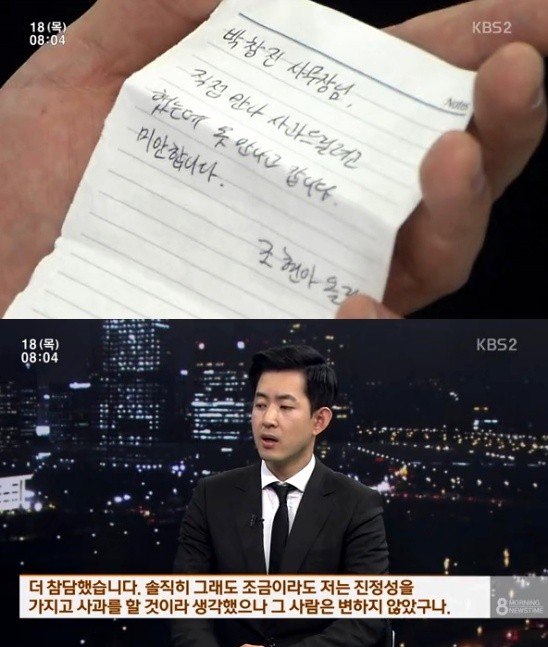 18(목)
08:04
KBS2
박창진 사무장님,
직접 만나 사과드릴려고
했는데 못 만나고 갑니다.
미안합니다.
조현아 올림
Note
18(목)
08:04
KBS2
더 참담했습니다. 솔직히 그래도 조금이라도 저는 진정성을
가지고 사과를 할 것이라 생각했으나 그 사람은 변하지 않았구나.
8 MORNING
NEWSTIME